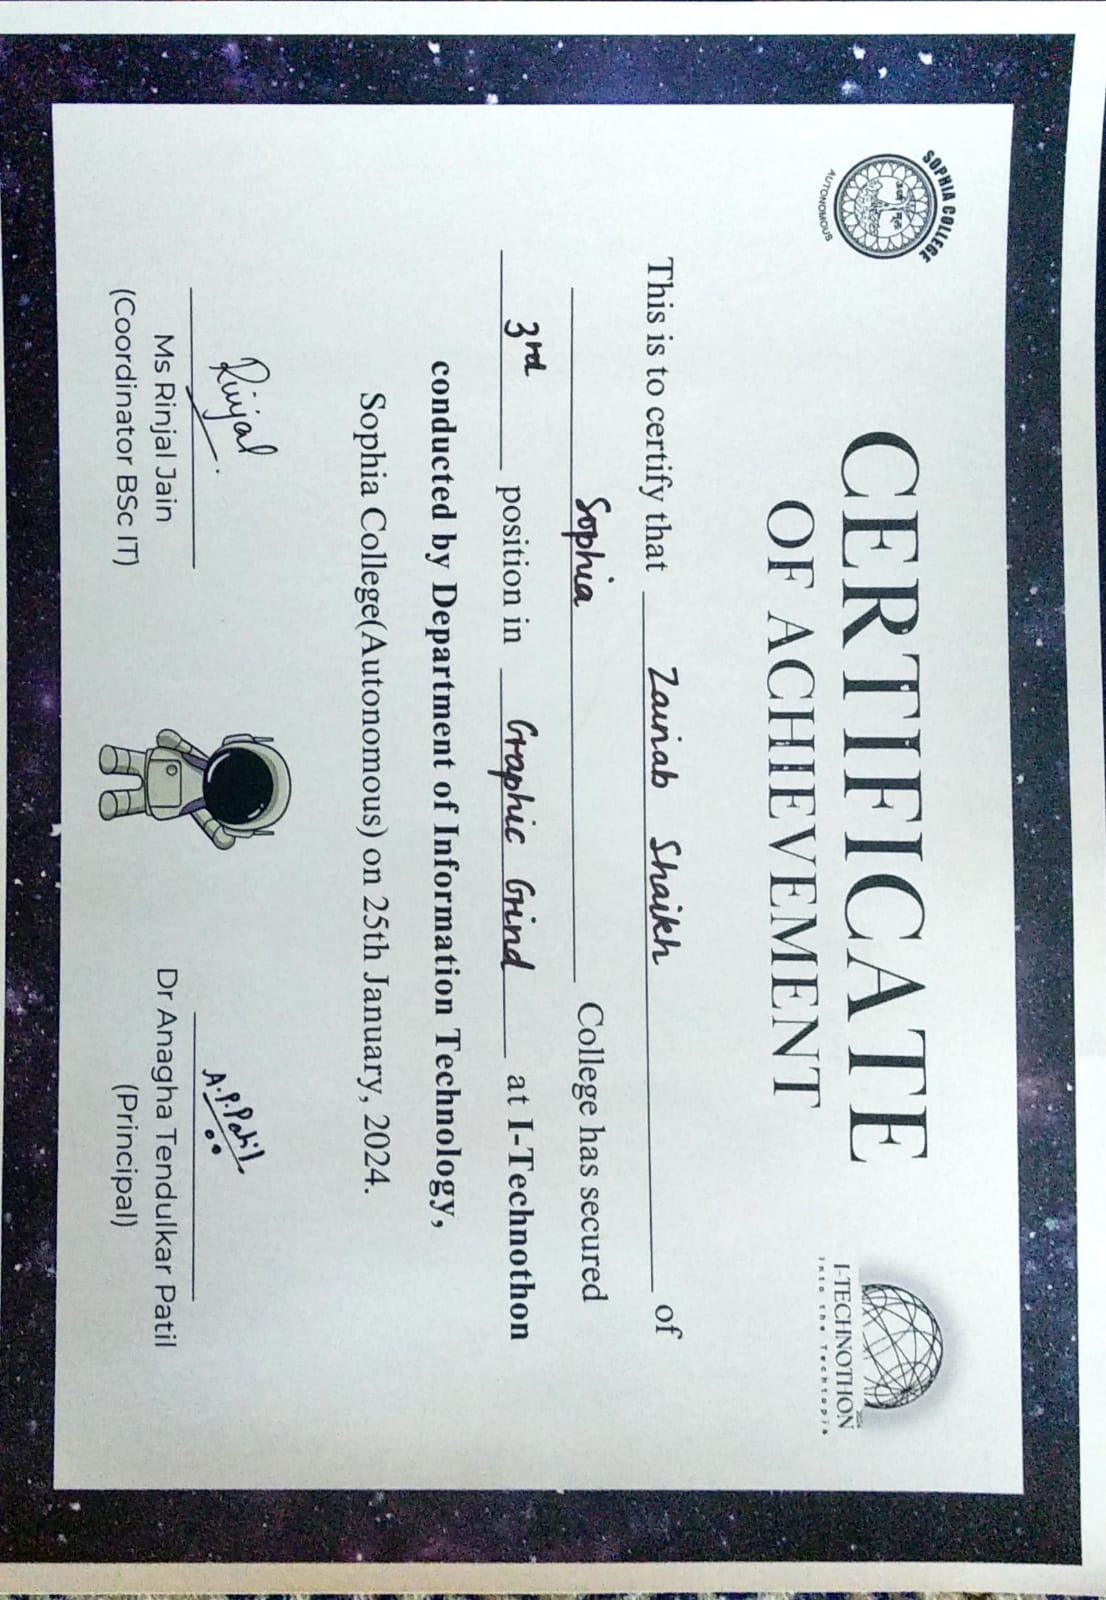 SOPHIA COLLEGE
AUTONOMOUS
CERTIFICATE
OF ACHIEVEMENT
2024
I-TECHNOTHON
Into the Techtopia
This is to certify that Zainab Shaikh of
Sophia College has secured
3rd position in Graphic Grind at I-Technothon
conducted by Department of Information Technology,
Sophia College(Autonomous) on 25th January, 2024.
Rinjal
A.P.Patil
Ms Rinjal Jain
(Coordinator BSc IT)
Dr Anagha Tendulkar Patil
(Principal)